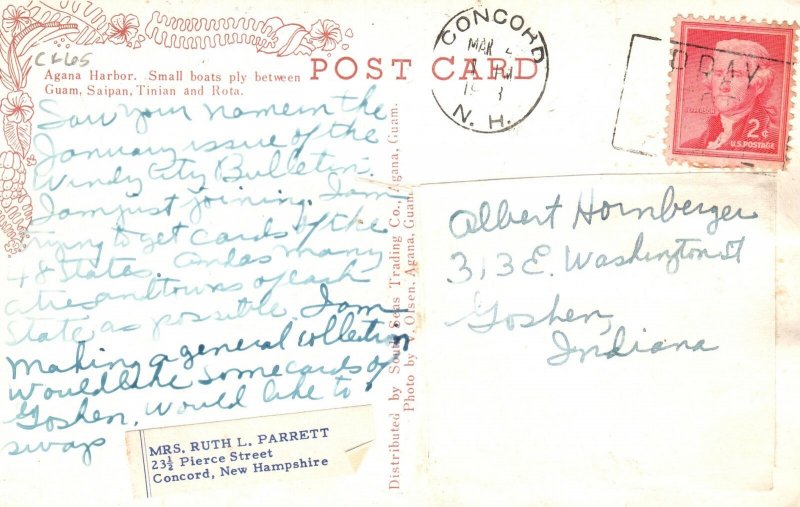 CL65
Agana Harbor. Small boats ply between
Guam, Saipan, Tinian and Rota.
POST CARD
Saw your name in the
January issue of the
Windy City Bulletin.
I am just joining. I am
trying to get cards of the
48 States. and as many
cities and towns of each
State as possible. I am
making a general collection
would like some cards of
Goshen, would like to
swap
MRS. RUTH L. PARRETT
23½ Pierce Street
Concord, New Hampshire
Distributed by South Seas Trading Co., Agana, Guam.
Photo by Olsen, Agana, Guam
CONCORD
MAR
N. H.
PRAY
JEFFERSON
2¢
U.S. POSTAGE
Albert Hornberger
313 E. Washington St
Goshen,
Indiana